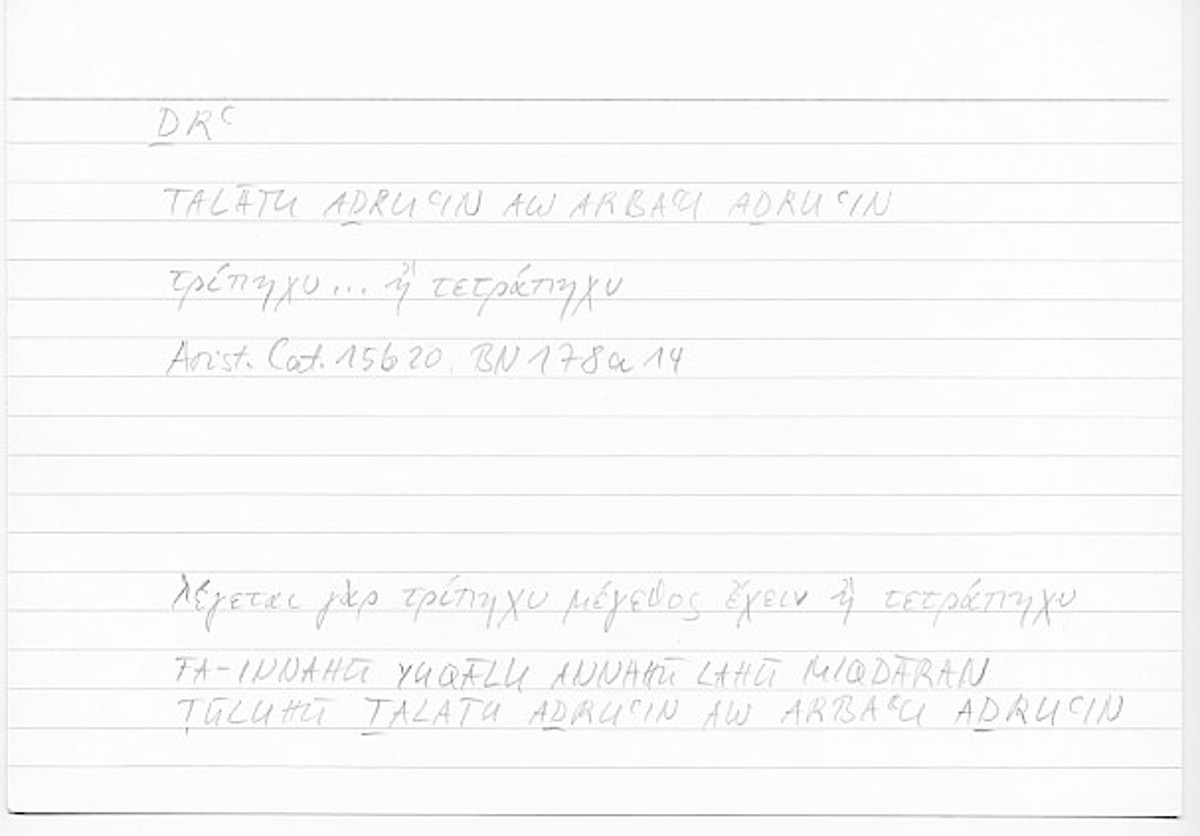 ḎRʿ
TALĀTU AḎRUʿIN AW ARBAʿU AḎRUʿIN
τρίπηχυ... ἢ τετράπηχυ
Arist. Cat. 15b20, BN 178a14
λέγεται γὰρ τρίπηχυ μέγεθος ἔχειν ἢ τετράπηχυ
FA-INNAHŪ YUQĀLU ANNAHŪ LAHŪ MIQDĀRAN
ṬŪLUHŪ ṮALATU AḎRUʿIN AW ARBAʿU AḎRUʿIN